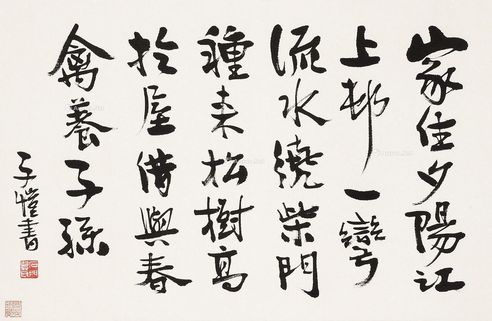 家住夕陽江
上邨一彎
流水繞柴門
種来松樹高
於屋借與春
禽養子孫
子愷書